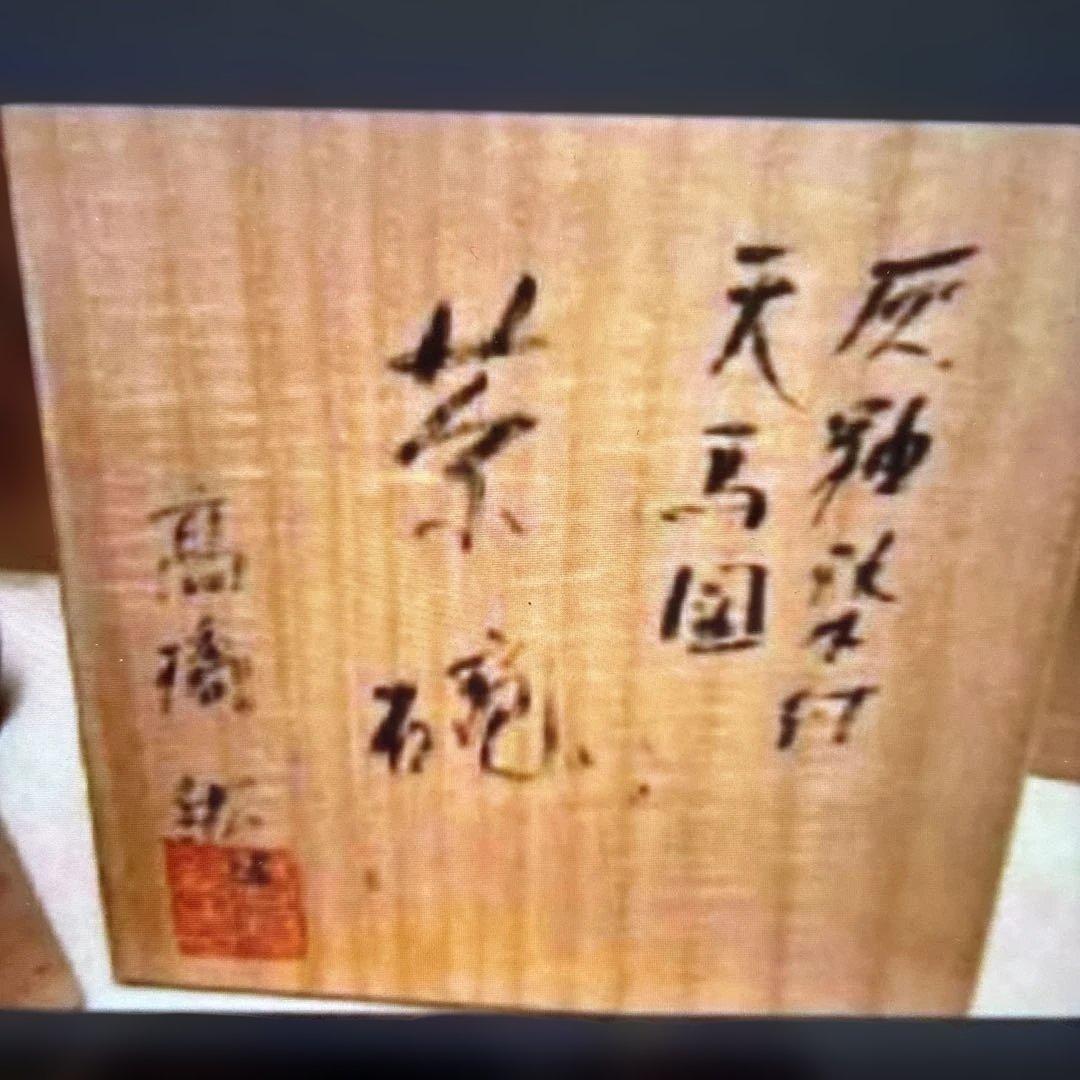 灰釉染付
天馬図
茶碗
高橋